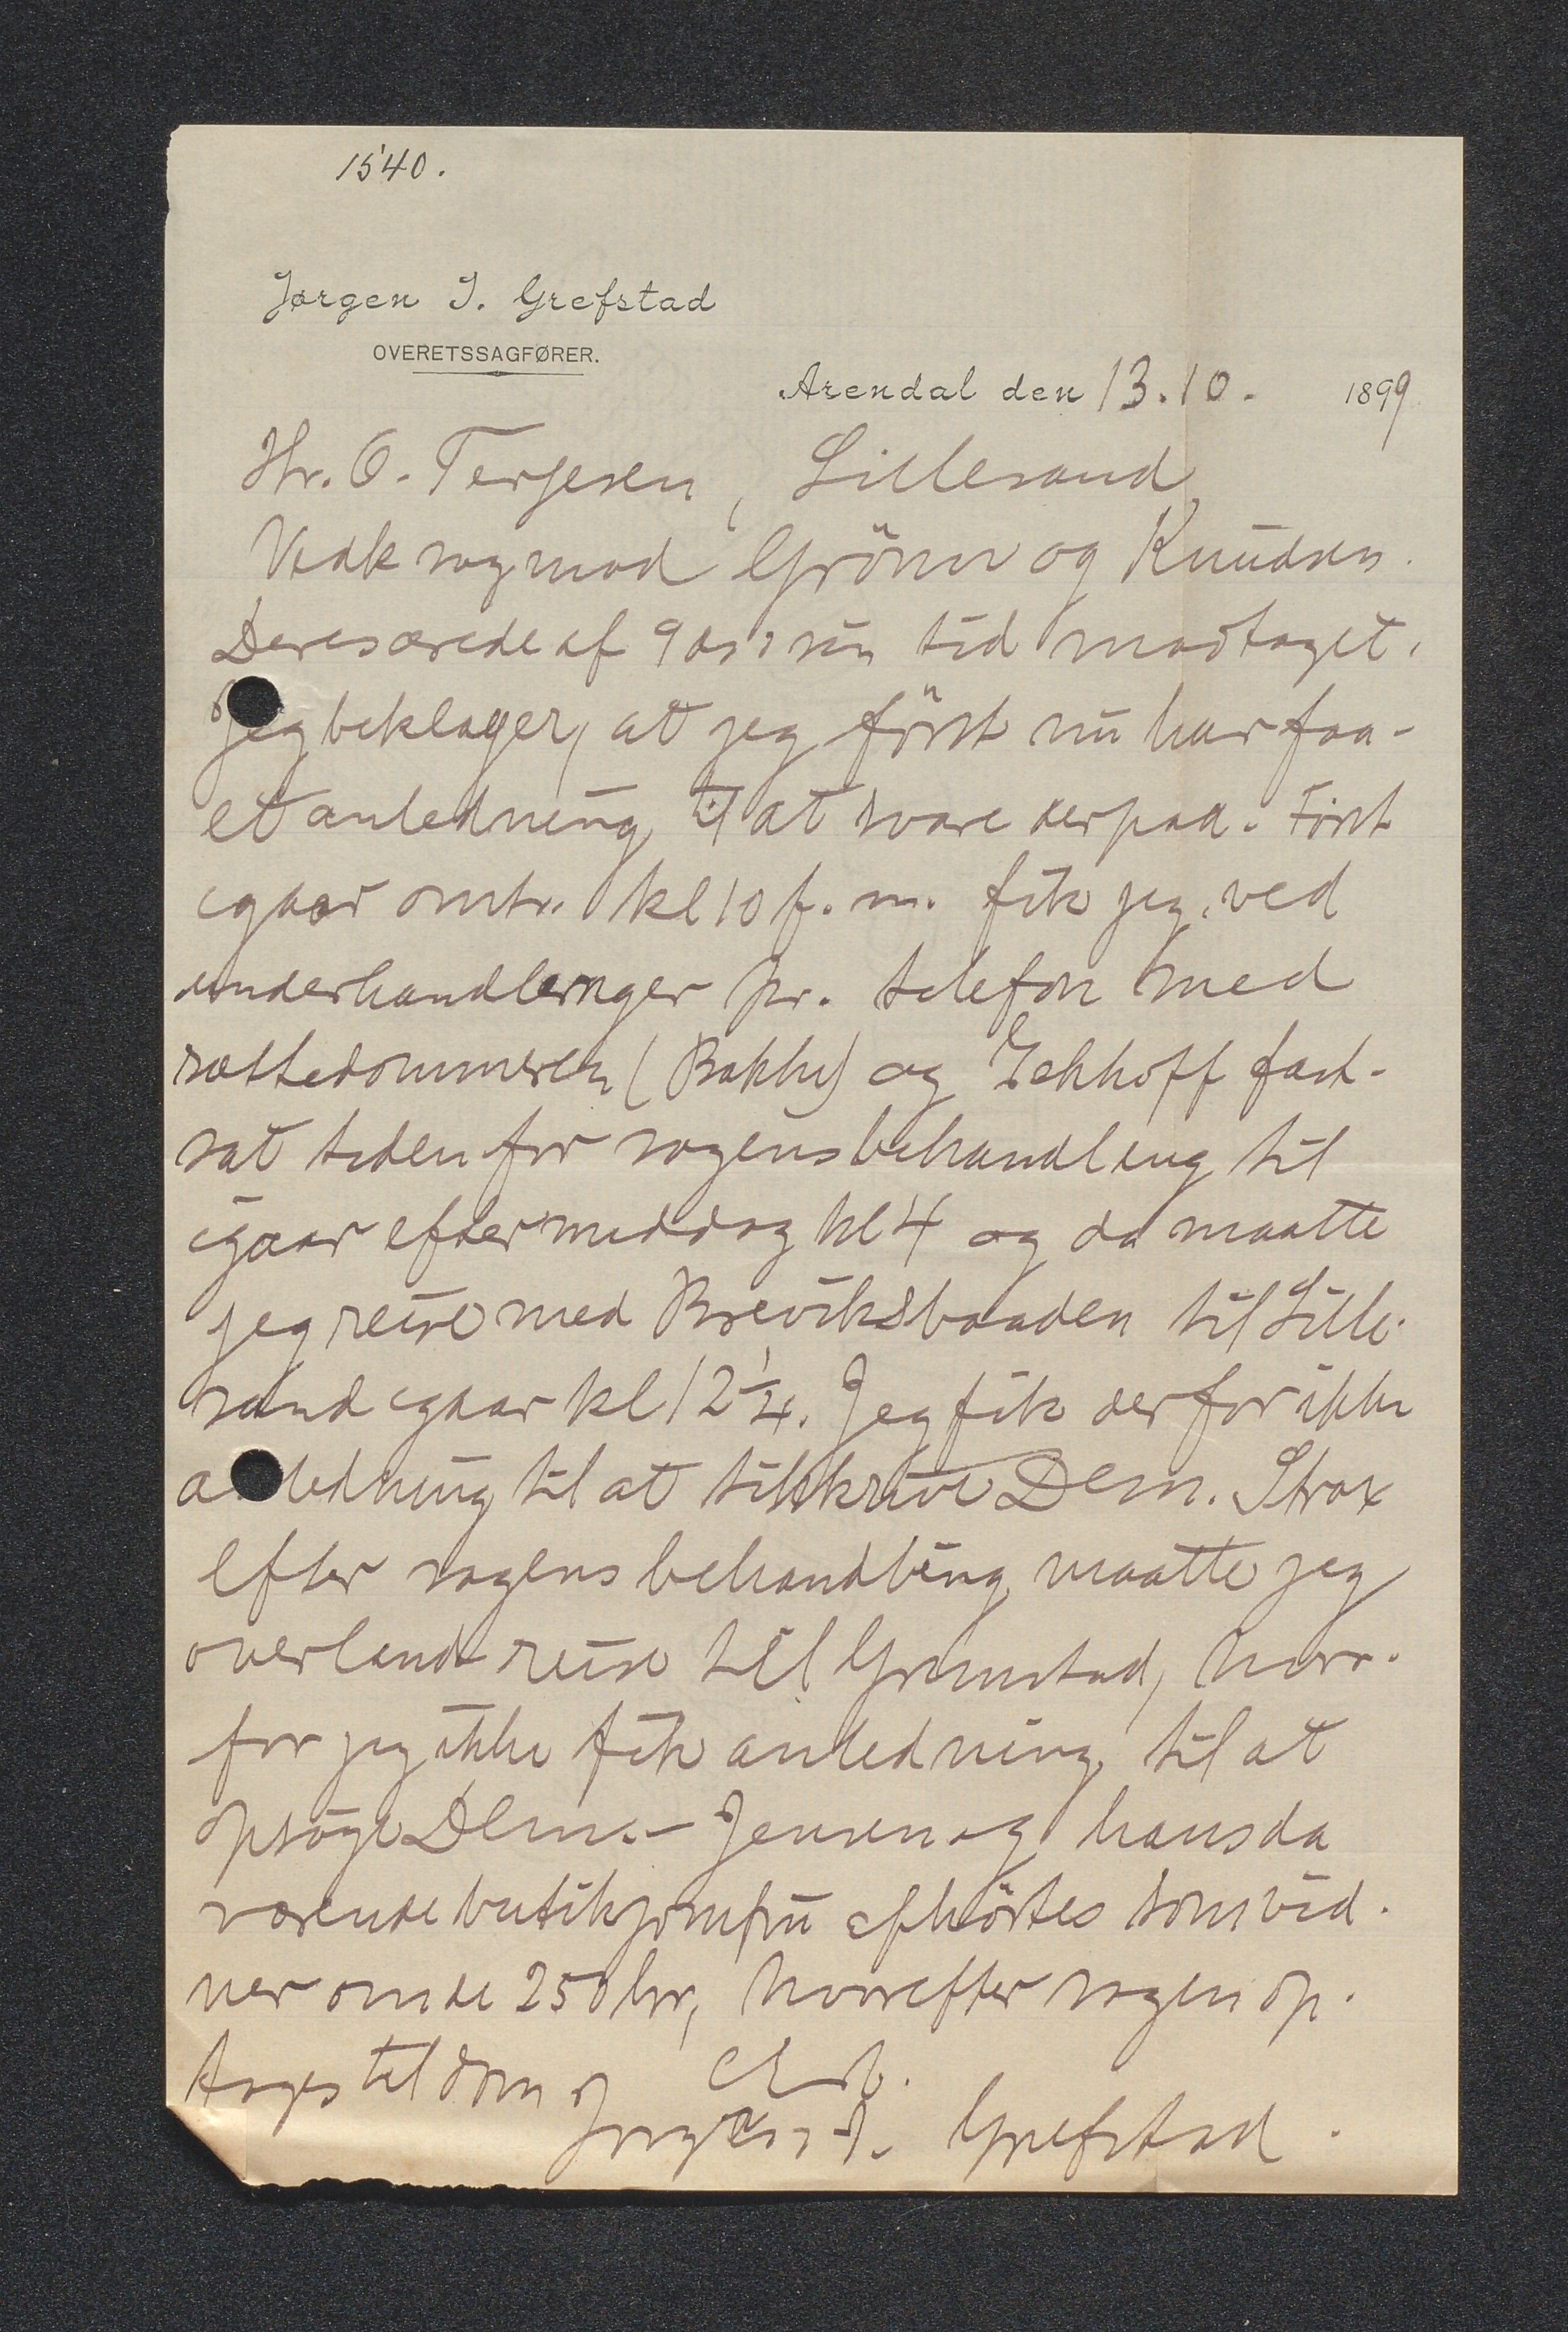 1540.
Jørgen I. Grefstad
OVERETSSAGFØRER.
Arendal den 13.10. 1899
Hr. O. Terjesen, Lillesand,
Vedk sag mod Grönn og Knudsen.
Deres ærede af 9 ds. i sin tid modtaget.
Jeg beklager, at jeg först nu har faa-
et anledning til at svare derpaa. Först
igaar omtr. kl 10 f. m. fik jeg ved
underhandlinger pr. telefon med
sættedommeren (Bakke) og Eckhoff fast-
sat tiden for sagens behandling til
igaar eftermiddag kl 4 og da maatte
jeg reise med Breviksbaaden til Lille-
sand igaar kl 12 1/4. Jeg fik derfor ikke
anledning til at tilskrive Dem. Strax
efter sagens behandling maatte jeg
overland reise til Grimstad, hvor-
for jeg ikke fik anledning til at
opsöge Dem. - Jensen og hans da
værende butikjomfru afhörtes som vid-
ner om de 250 kr, hvorefter sagen op-
toges til dom
Jørgen I. Grefstad.